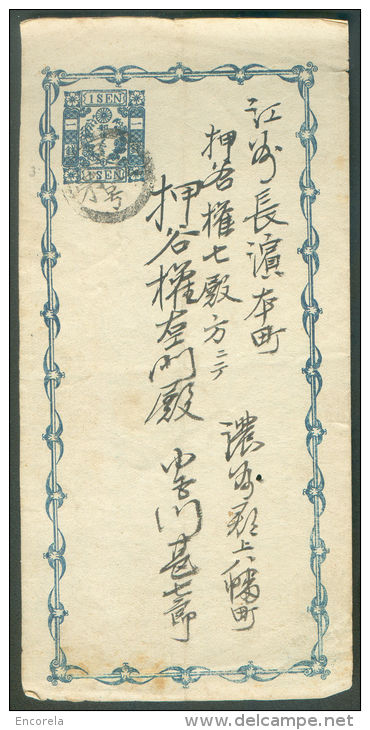 1 SEN
1 SEN
江州長濱本町
押谷權七殿方ニテ
押谷權左門殿
濃州郡上八幡町
甚七郎
Encorela
www.delcampe.net